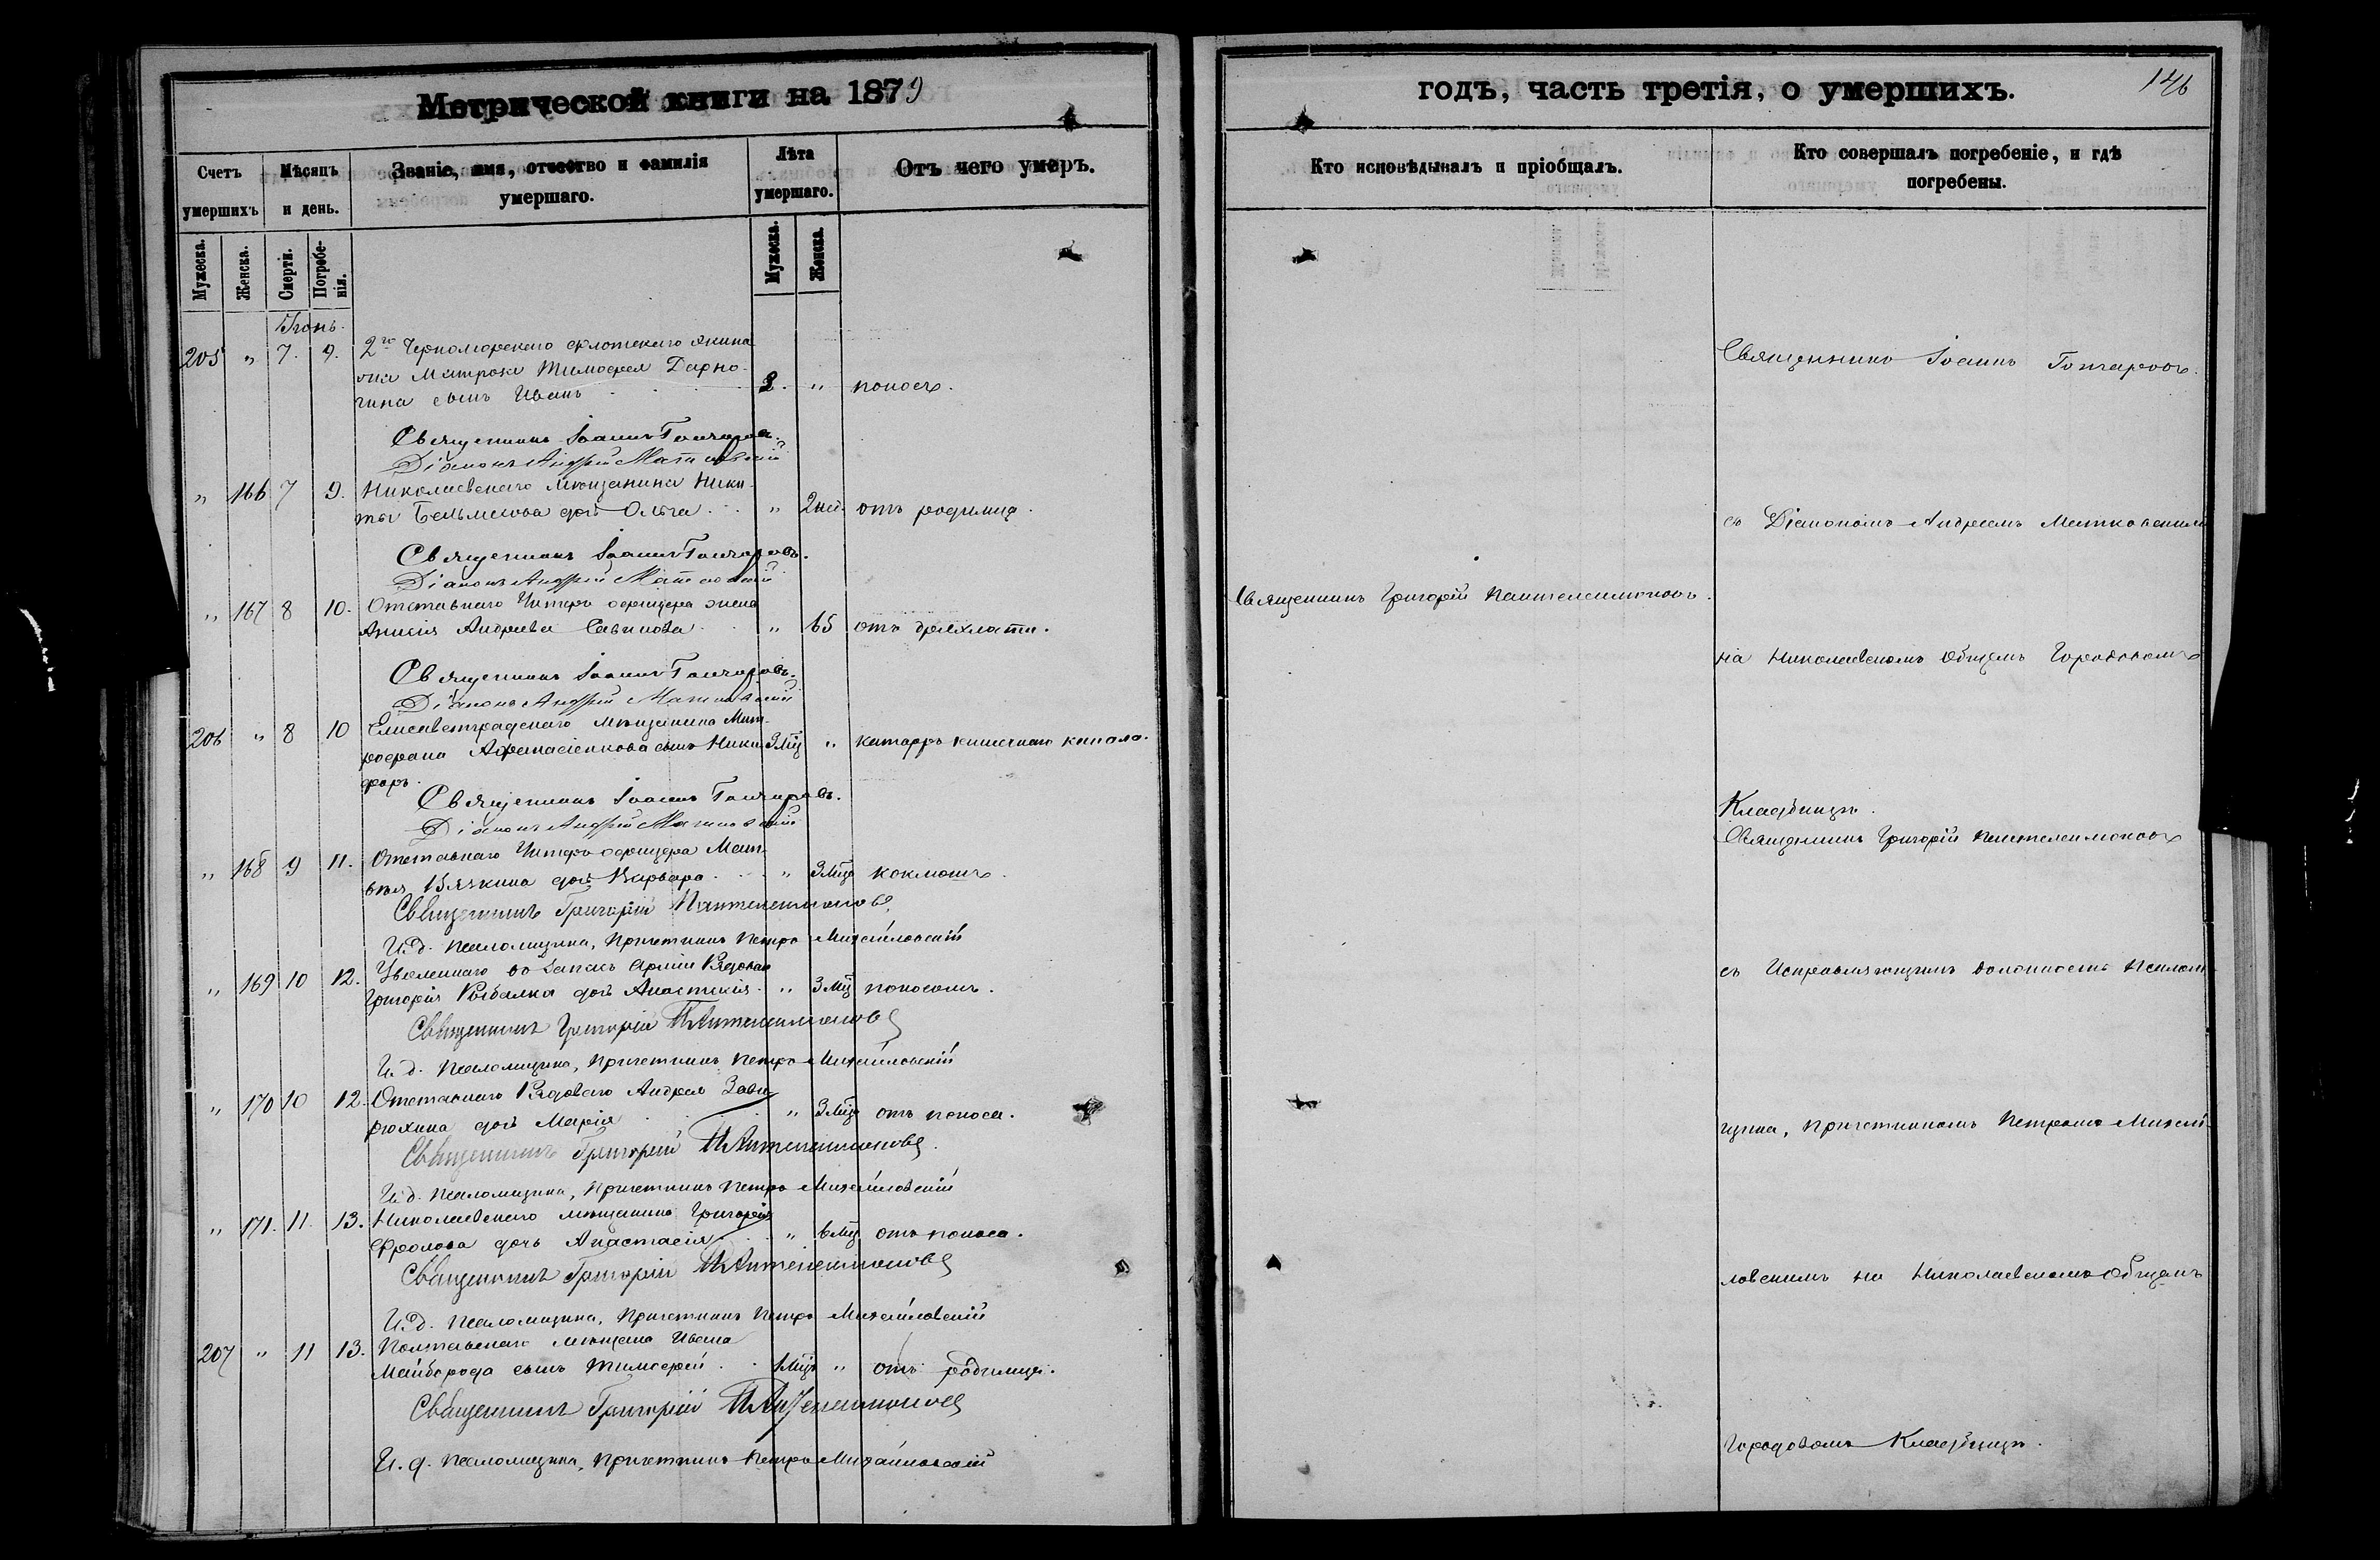 Метрической книги на 1879
годъ, часть третія, о умершихъ.
146
Счетъ умершихъ
Мѣсяцъ и день.
Званіе, имя, отчество и фамилія умершаго.
Лѣта умершаго.
Отъ чего умеръ.
Кто исповѣдывалъ и пріобщалъ.
Кто совершалъ погребеніе, и гдѣ погребены.
Мужеска.
Женска.
Смерти.
Погребенія.
Мужеска.
Женска.
Іюнь.
205 " 7. 9. 2го Черноморскаго флотскаго экипа
жа Матроса Тимофея
сынъ Иванъ " поносъ.
Священникъ Іоаннъ Гончаровъ.
Діаконъ Андрей Матковскій
" 166 7 9. Николаевскаго мѣщанина Ники
ты дочь Ольга " 2 нед. отъ родимца.
Священникъ Іоаннъ Гончаровъ.
Діаконъ Андрей Матковскій
" 167 8 10. Отставнаго Унтеръ офицера жена
Анисія Андреева Савинова " 65 отъ дряхлости.
Священникъ Іоаннъ Гончаровъ.
Діаконъ Андрей Матковскій
206 " 8 10 Елисаветградскаго мѣщанина Мит
рофана Афанасіенкова сынъ Ники 3 мц " катарръ кишечнаго канала.
форъ.
Священникъ Іоаннъ Гончаровъ.
Діаконъ Андрей Матковскій
" 168 9 11. Отставнаго Унтеръ офицера Мат
вѣя дочь Варвара " 3 мца коклюшъ.
Священникъ Григорій Пантелеимоновъ
И.д. псаломщика, Причетникъ Петръ Михайловскій
" 169 10 12. Уволеннаго въ запасъ Арміи Рядоваго
Григорія Рыбалка дочь Анастасія " 3 мц поносомъ.
Священникъ Григорій Пантелеимоновъ
И.д. псаломщика, Причетникъ Петръ Михайловскій
" 170 10 12. Отставнаго Рядоваго Андрея Зави
рюхина дочь Марія " 3 мца отъ поноса.
Священникъ Григорій Пантелеимоновъ.
И.д. псаломщика, Причетникъ Петръ Михайловскій
" 171. 11. 13. Николаевскаго мѣщанина Григорія
Фролова дочь Анастасія " 6 мц отъ поноса.
Священникъ Григорій Пантелеимоновъ
И.д. псаломщика, Причетникъ Петръ Михайловскій
207 " 11 13. Полтавскаго мѣщана Ивана
Майборода сынъ Тимофей 1 мца " отъ родимца.
Священникъ Григорій Пантелеимоновъ
И.д. псаломщика, Причетникъ Петръ Михайловскій
Священникъ Григорій Пантелеимоновъ.
Священникъ Іоаннъ Гончаровъ
съ Діакономъ Андреемъ Матковскимъ
на Николаевскомъ Общемъ Городскомъ
Кладбищѣ.
Священникъ Григорій Пантелеимоновъ
съ Исправляющимъ должность псалом
щика, Причетникомъ Петромъ Михай
ловскимъ на Николаевскомъ Общемъ
Городовомъ Кладбищѣ.